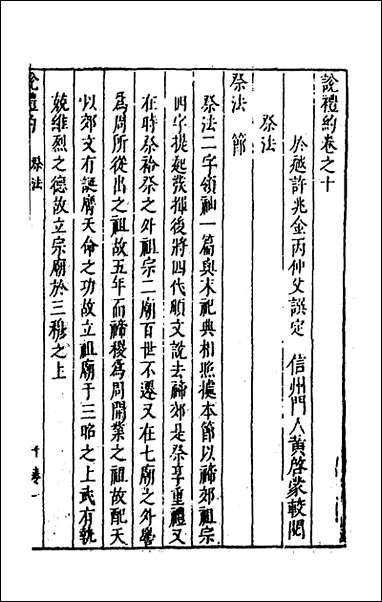 說禮約卷之十
於越許兆金丙仲父譔定 信州門人黃啓蒙較閱
祭法
祭法 節
祭法二字領袖一篇與末祀典相照據本節以禘郊祖宗
四字提起發揮後將四代順文說去禘郊是祭享重禮又
在時祭祫祭之外祖宗二廟百世不遷又在七廟之外嚳
爲周所從出之祖故五年而禘稷爲周開業之祖故配天
以郊文有誕膺天命之功故立祖廟于三昭之上武有執
兢維烈之德故立宗廟於三穆之上
說禮約 祭法 十卷 一